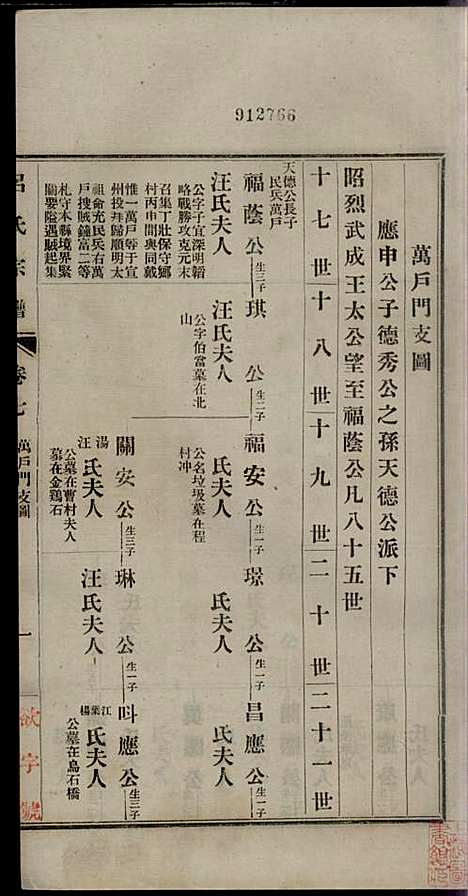 912766
萬戶門支圖
應申公子德秀公之孫天德公派下
昭烈武成王太公望至福蔭公凡八十五世
十七世 十八世 十九世 二十世 二十一世
天德公長子
民兵萬戶
福蔭公 生三子 琪公 生二子 福安公 生一子 璟公 生一子 昌應公 生一子
汪氏夫人 汪氏夫人 氏夫人 氏夫人 氏夫人
公字子宜深明韜
略戰勝攻克元末
召集丁壯保守鄉
村丙申間與同戴
惟一萬戶等于宣
州投拜歸順明太
祖命充民兵右萬
戶搜賊鐘富二等
札守本縣境界緊
關要隘遇賊起集
公字伯當墓在北
山
公名垃圾墓在程
村冲
關安公 生三子 琳公 生一子 呌應公 生三子
湯汪氏夫人 汪氏夫人 江葉楊氏夫人
公墓在曹村夫人
墓在金鷄石
公墓在烏石橋
呂氏宗譜 卷七 萬戶門支圖 一 欲字號